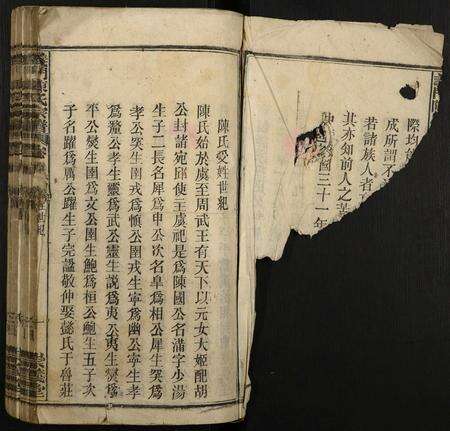 際均
成所謂不
若諸族人者
其亦知前人之苦
國三十一年
陳氏受姓世紀
陳氏始於虞至周武王有天下以元女大姬配胡
公封諸宛邱使主虞祀是爲陳國公名滿字少湯
生子二長名犀爲申公次名皋爲相公犀生突爲
孝公突生圉戎爲愼公圉戎生寧爲幽公寧生孝
爲釐公孝生靈爲武公靈生說爲夷公夷生燮爲
平公燮生圉爲文公圉生鮑爲桓公鮑生五子次
子名躍爲厲公躍生子完謚敬仲娶懿氏于魯莊